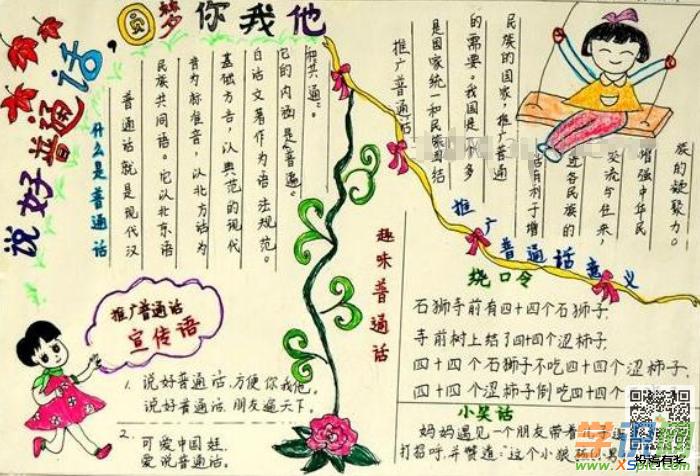 说好普通话，圆梦你我他
什么是普通话
普通话就是现代汉
民族共同语。它以北京语
音为标准音，以北方话为
基础方言，以典范的现代
白话文著作为语法规范。
它的内涵是“普遍
和共通”。
推广普通话
是国家统一和民族团结
的需要。我国是
民族的国家，推广普通
话有利于增
进各民族的
交流与往来，
增强中华民
族的凝聚力。
推广普通话意义
趣味普通话
推广普通话
宣传语
1、说好普通话，方便你我他。
说好普通话，朋友遍天下。
2、可爱中国娃，
爱说普通话。
绕口令
石狮寺前有四十四个石狮子，
寺前树上结了四十四个涩柿子，
四十四个石狮子不吃四十四个涩柿子，
四十四个涩柿子倒吃四十四个
小笑话
妈妈遇见一个朋友带着
打招呼，并赞道：这个小